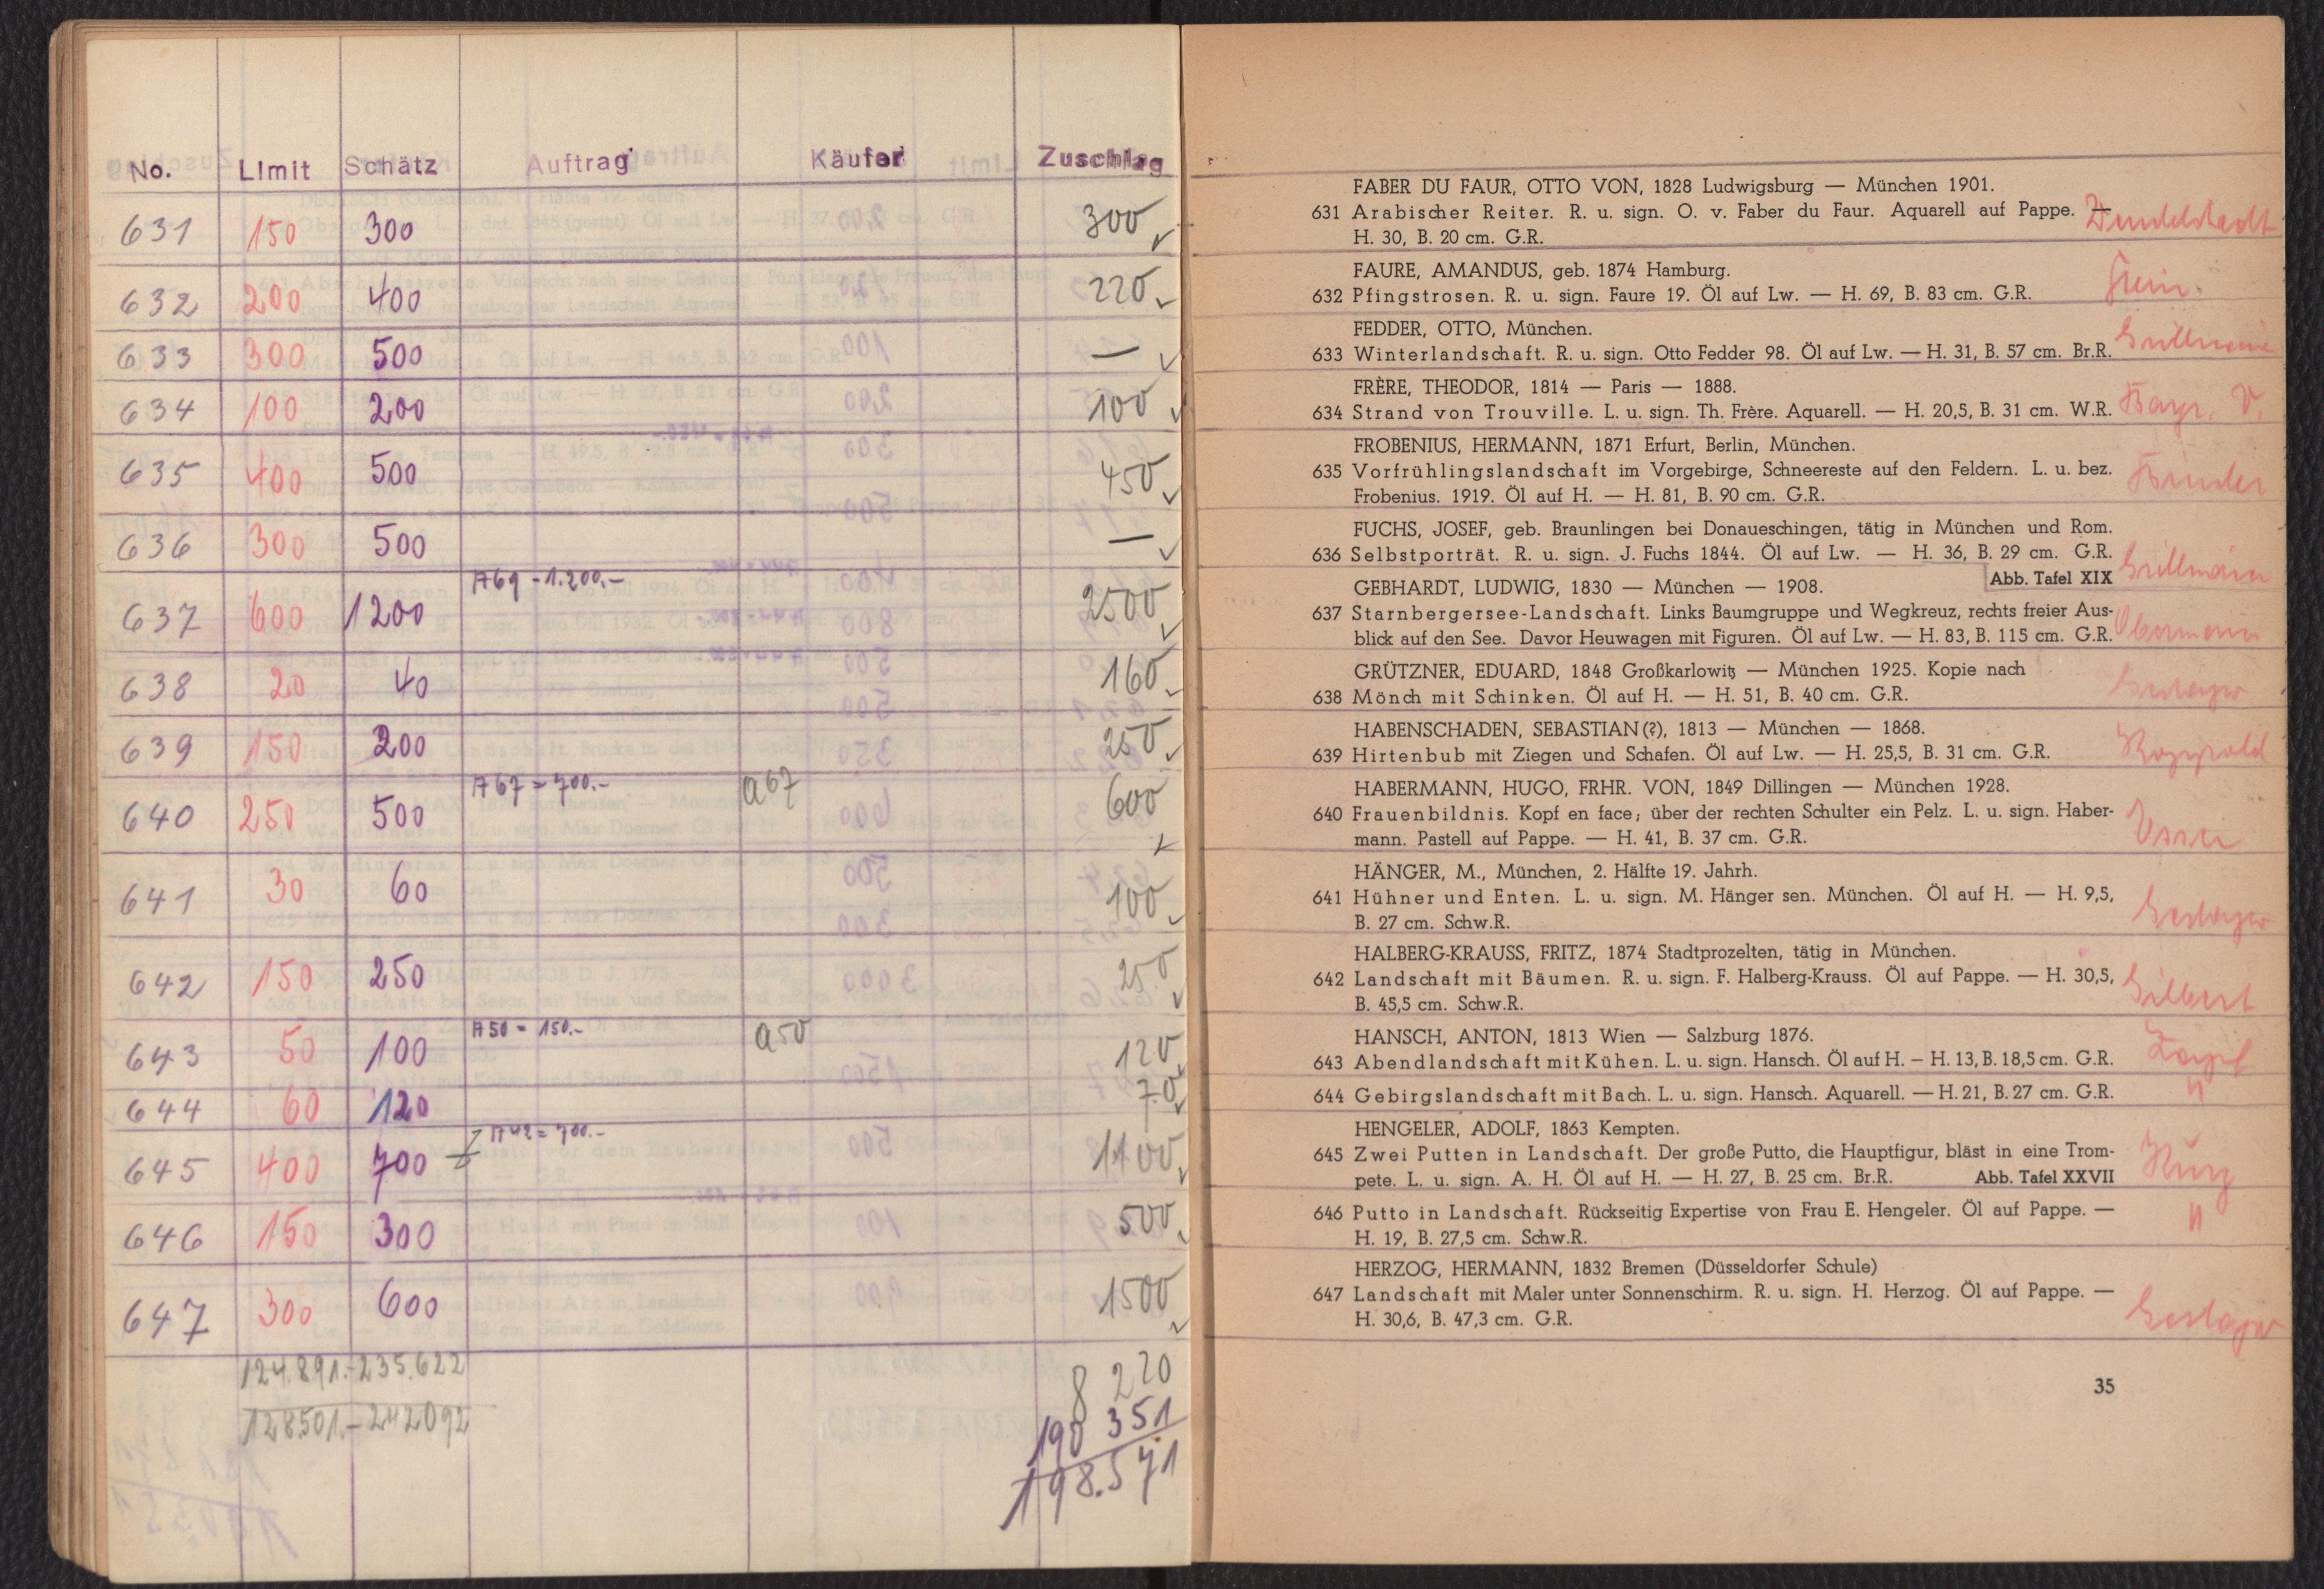 No. Limit Schätz Auftrag Käufer Zuschlag
631 150 300 300
632 200 400 220
633 300 500 —
634 100 200 100
635 400 500 450
636 300 500 —
637 600 1200 A69 - 1.200.- 2500
638 20 40 160
639 150 200 250
640 250 500 A67 = 700.- a67 600
641 30 60 100
642 150 250 250
643 50 100 A50 = 150.- a50 120
644 60 120 70
645 400 700 A42 = 700.- 1100
646 150 300 500
647 300 600 1500
124.891.- 235.622 8 220
128501.- 242092 190 351
198.571
FABER DU FAUR, OTTO VON, 1828 Ludwigsburg — München 1901.
631 Arabischer Reiter. R. u. sign. O. v. Faber du Faur. Aquarell auf Pappe. —
H. 30, B. 20 cm. G.R.
FAURE, AMANDUS, geb. 1874 Hamburg.
632 Pfingstrosen. R. u. sign. Faure 19. Öl auf Lw. — H. 69, B. 83 cm. G.R.
FEDDER, OTTO, München.
633 Winterlandschaft. R. u. sign. Otto Fedder 98. Öl auf Lw. — H. 31, B. 57 cm. Br.R.
FRÈRE, THEODOR, 1814 — Paris — 1888.
634 Strand von Trouville. L. u. sign. Th. Frère. Aquarell. — H. 20,5, B. 31 cm. W.R. Bayr. V.
FROBENIUS, HERMANN, 1871 Erfurt, Berlin, München.
635 Vorfrühlingslandschaft im Vorgebirge, Schneereste auf den Feldern. L. u. bez.
Frobenius. 1919. Öl auf H. — H. 81, B. 90 cm. G.R.
FUCHS, JOSEF, geb. Braunlingen bei Donaueschingen, tätig in München und Rom.
636 Selbstporträt. R. u. sign. J. Fuchs 1844. Öl auf Lw. — H. 36, B. 29 cm. G.R.
Abb. Tafel XIX
GEBHARDT, LUDWIG, 1830 — München — 1908.
637 Starnbergersee-Landschaft. Links Baumgruppe und Wegkreuz, rechts freier Aus-
blick auf den See. Davor Heuwagen mit Figuren. Öl auf Lw. — H. 83, B. 115 cm. G.R.
GRÜTZNER, EDUARD, 1848 Großkarlowitz — München 1925. Kopie nach
638 Mönch mit Schinken. Öl auf H. — H. 51, B. 40 cm. G.R.
HABENSCHADEN, SEBASTIAN (?), 1813 — München — 1868.
639 Hirtenbub mit Ziegen und Schafen. Öl auf Lw. — H. 25,5, B. 31 cm. G.R.
HABERMANN, HUGO, FRHR. VON, 1849 Dillingen — München 1928.
640 Frauenbildnis. Kopf en face; über der rechten Schulter ein Pelz. L. u. sign. Haber-
mann. Pastell auf Pappe. — H. 41, B. 37 cm. G.R.
HÄNGER, M., München, 2. Hälfte 19. Jahrh.
641 Hühner und Enten. L. u. sign. M. Hänger sen. München. Öl auf H. — H. 9,5,
B. 27 cm. Schw.R.
HALBERG-KRAUSS, FRITZ, 1874 Stadtprozelten, tätig in München.
642 Landschaft mit Bäumen. R. u. sign. F. Halberg-Krauss. Öl auf Pappe. — H. 30,5,
B. 45,5 cm. Schw.R. Gilbert
HANSCH, ANTON, 1813 Wien — Salzburg 1876.
643 Abendlandschaft mit Kühen. L. u. sign. Hansch. Öl auf H. — H. 13, B. 18,5 cm. G.R.
644 Gebirgslandschaft mit Bach. L. u. sign. Hansch. Aquarell. — H. 21, B. 27 cm. G.R. "
HENGELER, ADOLF, 1863 Kempten.
645 Zwei Putten in Landschaft. Der große Putto, die Hauptfigur, bläst in eine Trom-
pete. L. u. sign. A. H. Öl auf H. — H. 27, B. 25 cm. Br.R. Abb. Tafel XXVII
646 Putto in Landschaft. Rückseitig Expertise von Frau E. Hengeler. Öl auf Pappe. — "
H. 19, B. 27,5 cm. Schw.R.
HERZOG, HERMANN, 1832 Bremen (Düsseldorfer Schule)
647 Landschaft mit Maler unter Sonnenschirm. R. u. sign. H. Herzog. Öl auf Pappe. —
H. 30,6, B. 47,3 cm. G.R.
35